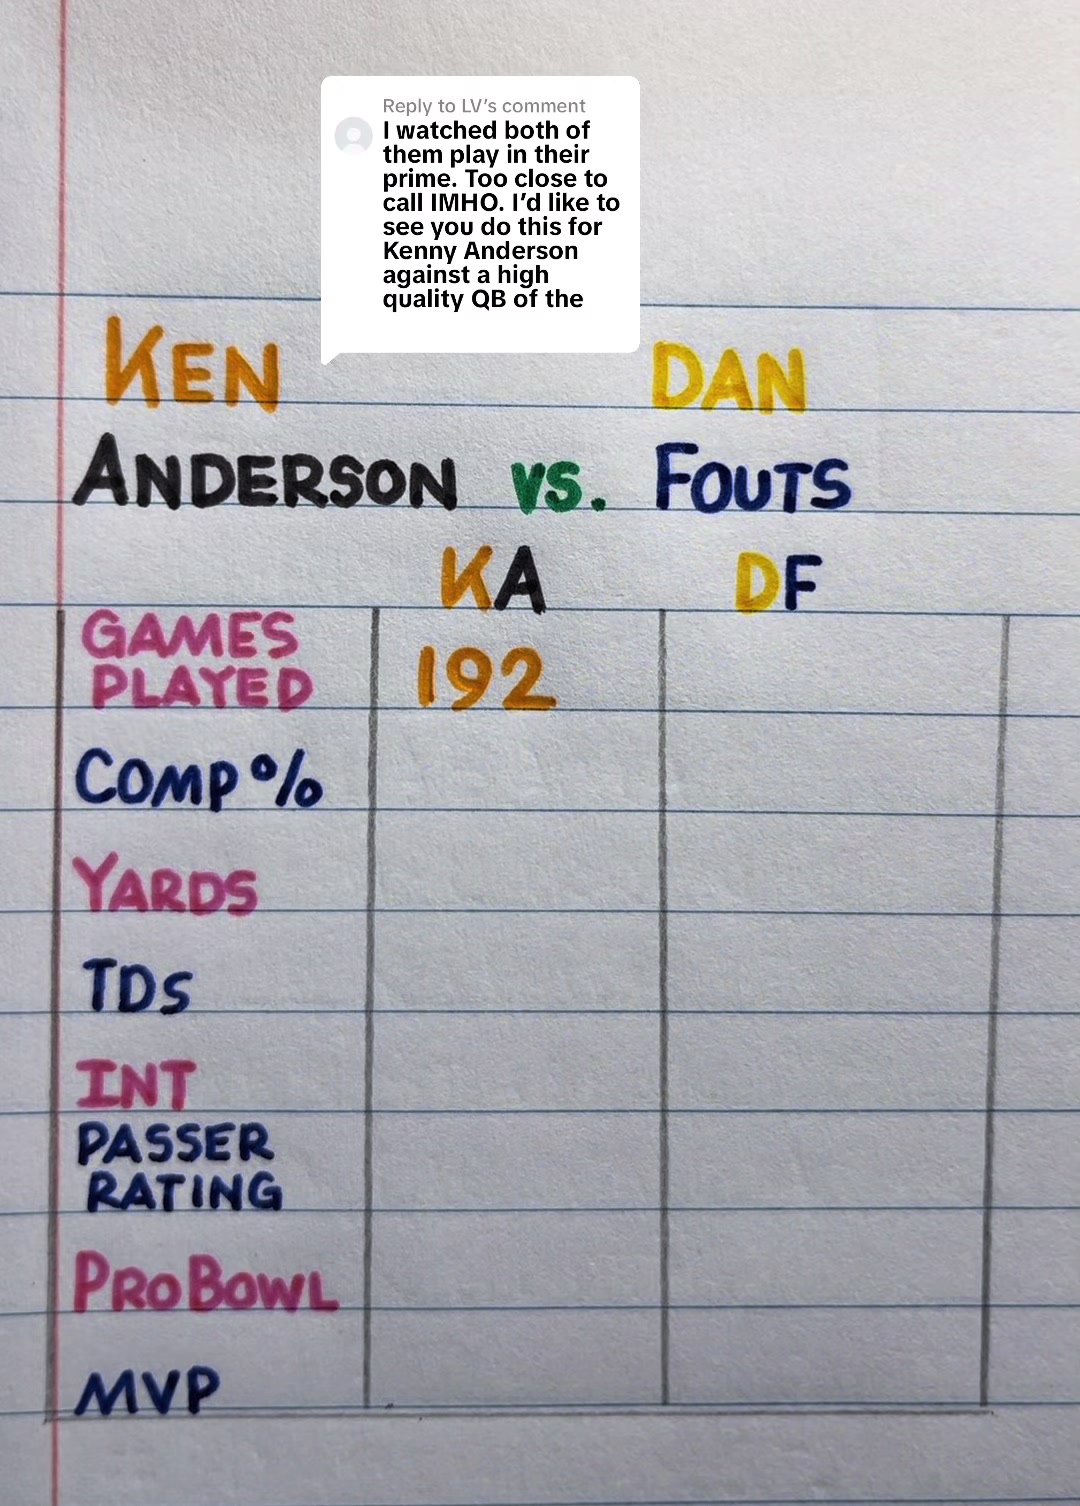 Reply to LV's comment
I watched both of
them play in their
prime. Too close to
call IMHO. I'd like to
see you do this for
Kenny Anderson
against a high
quality QB of the
KEN DAN
ANDERSON VS. FOUTS
KA DF
GAMES
PLAYED 192
COMP %
YARDS
TDS
INT
PASSER
RATING
PRO BOWL
MVP